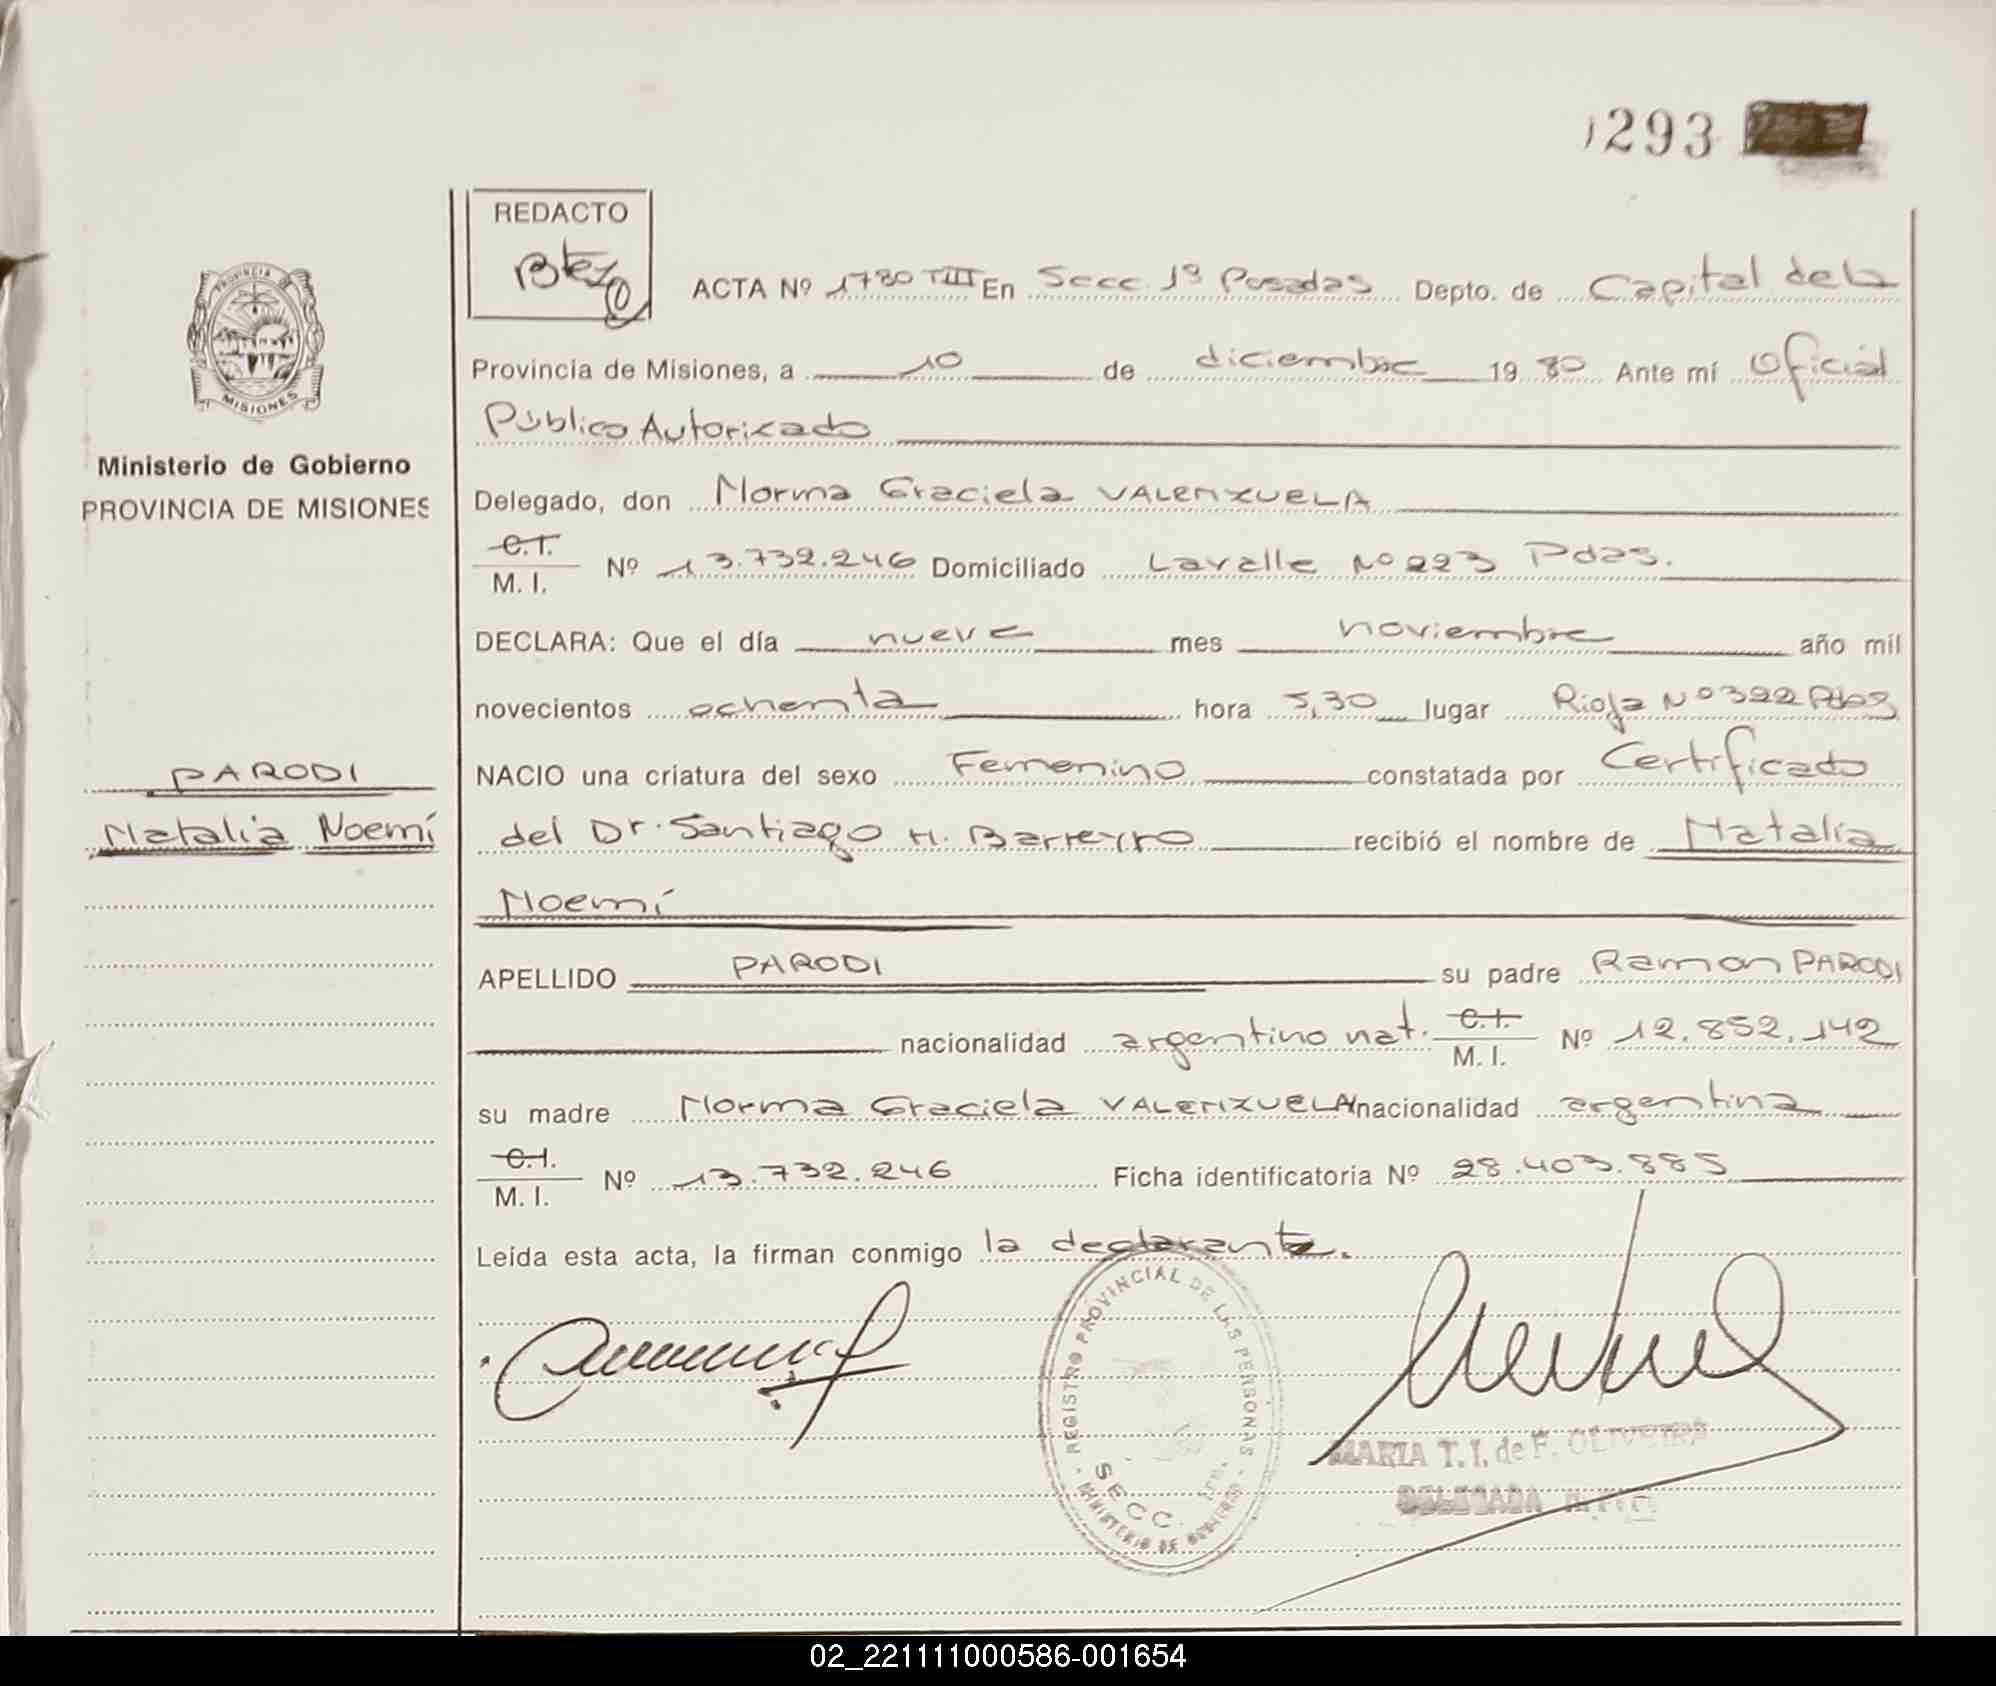 293
REDACTO
ACTA Nº 1780 TIII En Secc 1ª Posadas Depto. de Capital de la
Provincia de Misiones, a 10 de diciembre 1980 Ante mí Oficial
Público Autorizado
PROVINCIA
MISIONES
Ministerio de Gobierno
PROVINCIA DE MISIONES
Delegado, don Norma Graciela VALENZUELA
C.I.
M. I. Nº 13.732.246 Domiciliado Lavalle Nº 223 Pdas.
DECLARA: Que el día nueve mes noviembre año mil
novecientos ochenta hora 5,30 lugar Rioja Nº 322 Pdas
PARODI
Natalia Noemí
NACIO una criatura del sexo Femenino constatada por Certificado
del Dr. Santiago H. Barreyro recibió el nombre de Natalia
Noemí
APELLIDO PARODI su padre Ramon PARODI
nacionalidad argentino nat. C.I. M. I. Nº 12.852.142
su madre Norma Graciela VALENZUELA nacionalidad argentina
C.I.
M. I. Nº 13.732.246 Ficha identificatoria Nº 28.403.885
Leída esta acta, la firman conmigo la declarante.
REGISTRO PROVINCIAL DE LAS PERSONAS
SECC.
MINISTERIO DE GOBIERNO
MARIA T. I. de F. OLIVEIRA
DELEGADA
02_221111000586-001654